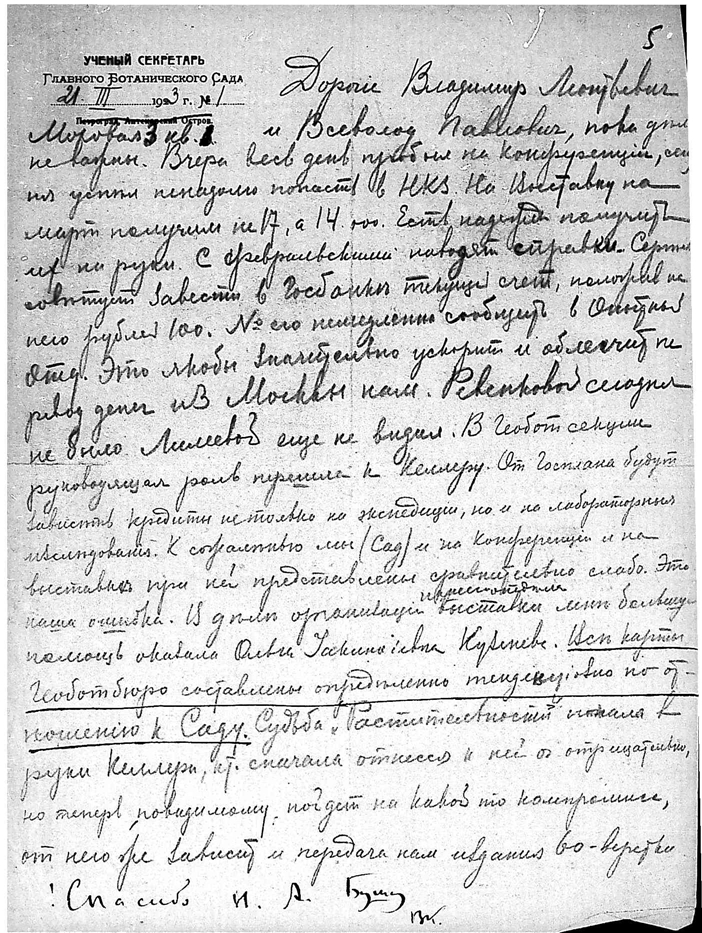 5
УЧЕНЫЙ СЕКРЕТАРЬ
Главного Ботанического Сада
21 III 1923 г. № 1
Петроград, Аптекарский Остров.
Дорогие Владимир Леонтьевич
Моховая 3 кв. и Всеволод Павлович, пока дела
не важны. Вчера весь день пробыл на конференціи,
успел ненадолго попасть в НКЗ. На Выставку на
март получим не 17, а 14.000. Есть надежда получить
их на руки. С февральскими наводят справки.
советует завести в Госбанкѣ текущій счет, положив на
него рублей 100. № его немедленно сообщить в Опытный
Отд. Это якобы значительно ускорит и облегчит пе
ревод денег из Москвы нам. Ревенковой сегодня
не было Лилеевой еще не видил. В Геобот секции
руководящая роль перешла к Келлеру. От Госплана будут
зависить кредиты не только на экспедиции, но и на лабораторныя
изслѣдованія. К сожалѣнью мы (Сад) и на Конференціи и на
выставкѣ при ней представлены сравнительно слабо. Это
наша ошибка. В дѣлѣ организаціи выставки мнѣ большую
помощь оказала Ольга Кузенева. Всѣ карты
Геоботбюро составлены опредѣленно тенденціозно по от-
ношенію к Саду. Судьба „Растительности" попала в
руки Келлера, кт. сначала отнесся к ней отрицательно,
но теперь, повидимому, пойдет на какой то компромисс,
от него же зависит и передача нам изданія 60-верстки
! Спасибо Н. А. Бушу